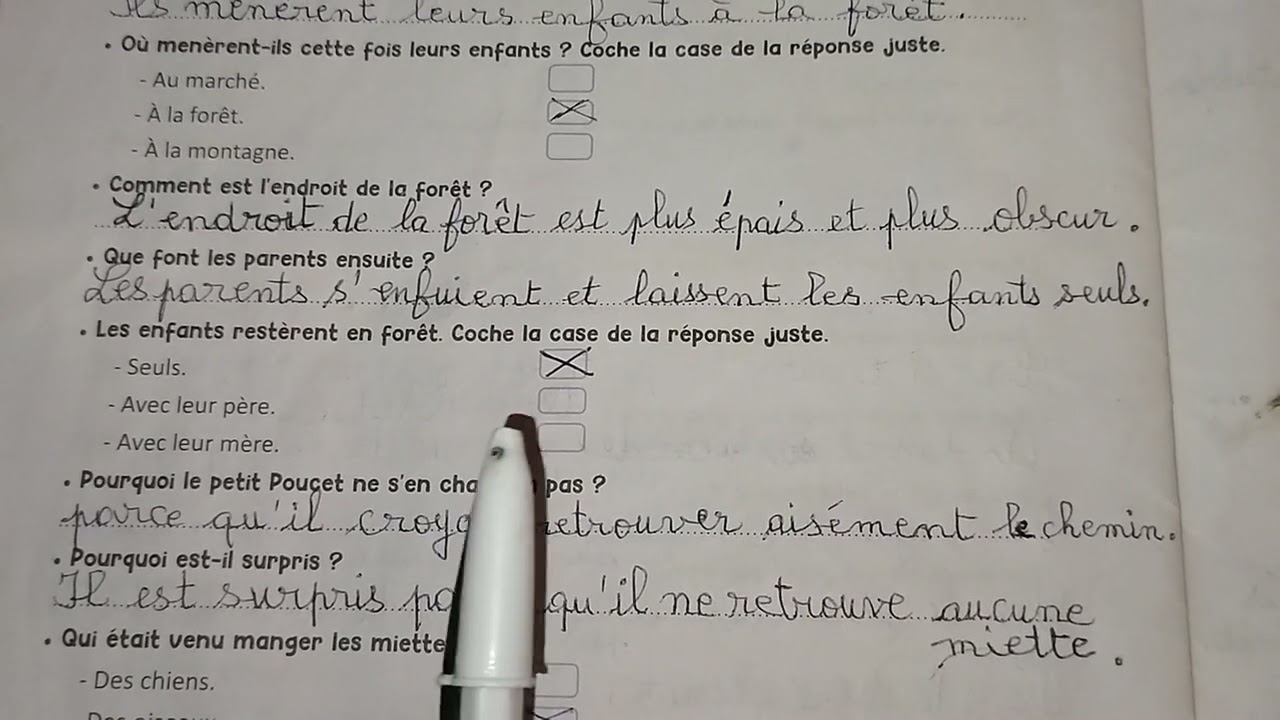 Ils menèrent leurs enfants à la forêt.
• Où menèrent-ils cette fois leurs enfants ? Coche la case de la réponse juste.
- Au marché.
- À la forêt.
- À la montagne.
• Comment est l'endroit de la forêt ?
L'endroit de la forêt est plus épais et plus obscur.
• Que font les parents ensuite ?
Les parents s'enfuient et laissent les enfants seuls.
• Les enfants restèrent en forêt. Coche la case de la réponse juste.
- Seuls.
- Avec leur père.
- Avec leur mère.
• Pourquoi le petit Pouçet ne s'en pas ?
parce qu'il retrouver aisément le chemin.
• Pourquoi est-il surpris ?
Il est surpris qu'il ne retrouve aucune
miette.
• Qui était venu manger les
- Des chiens.